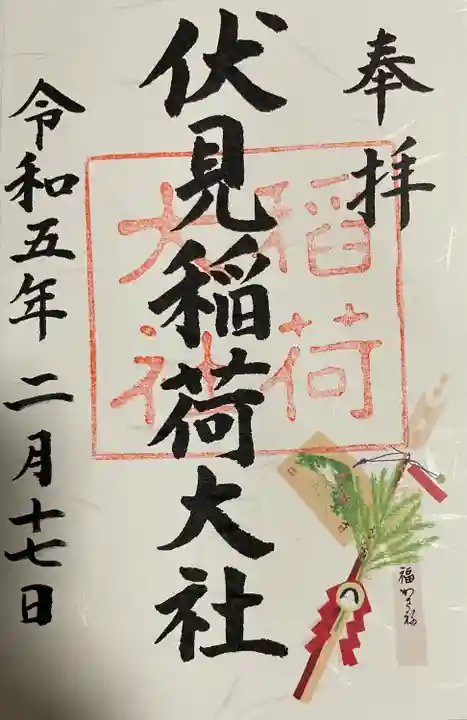 奉拝
伏見稲荷大社
稲荷
大社
令和五年二月十七日
福かさね